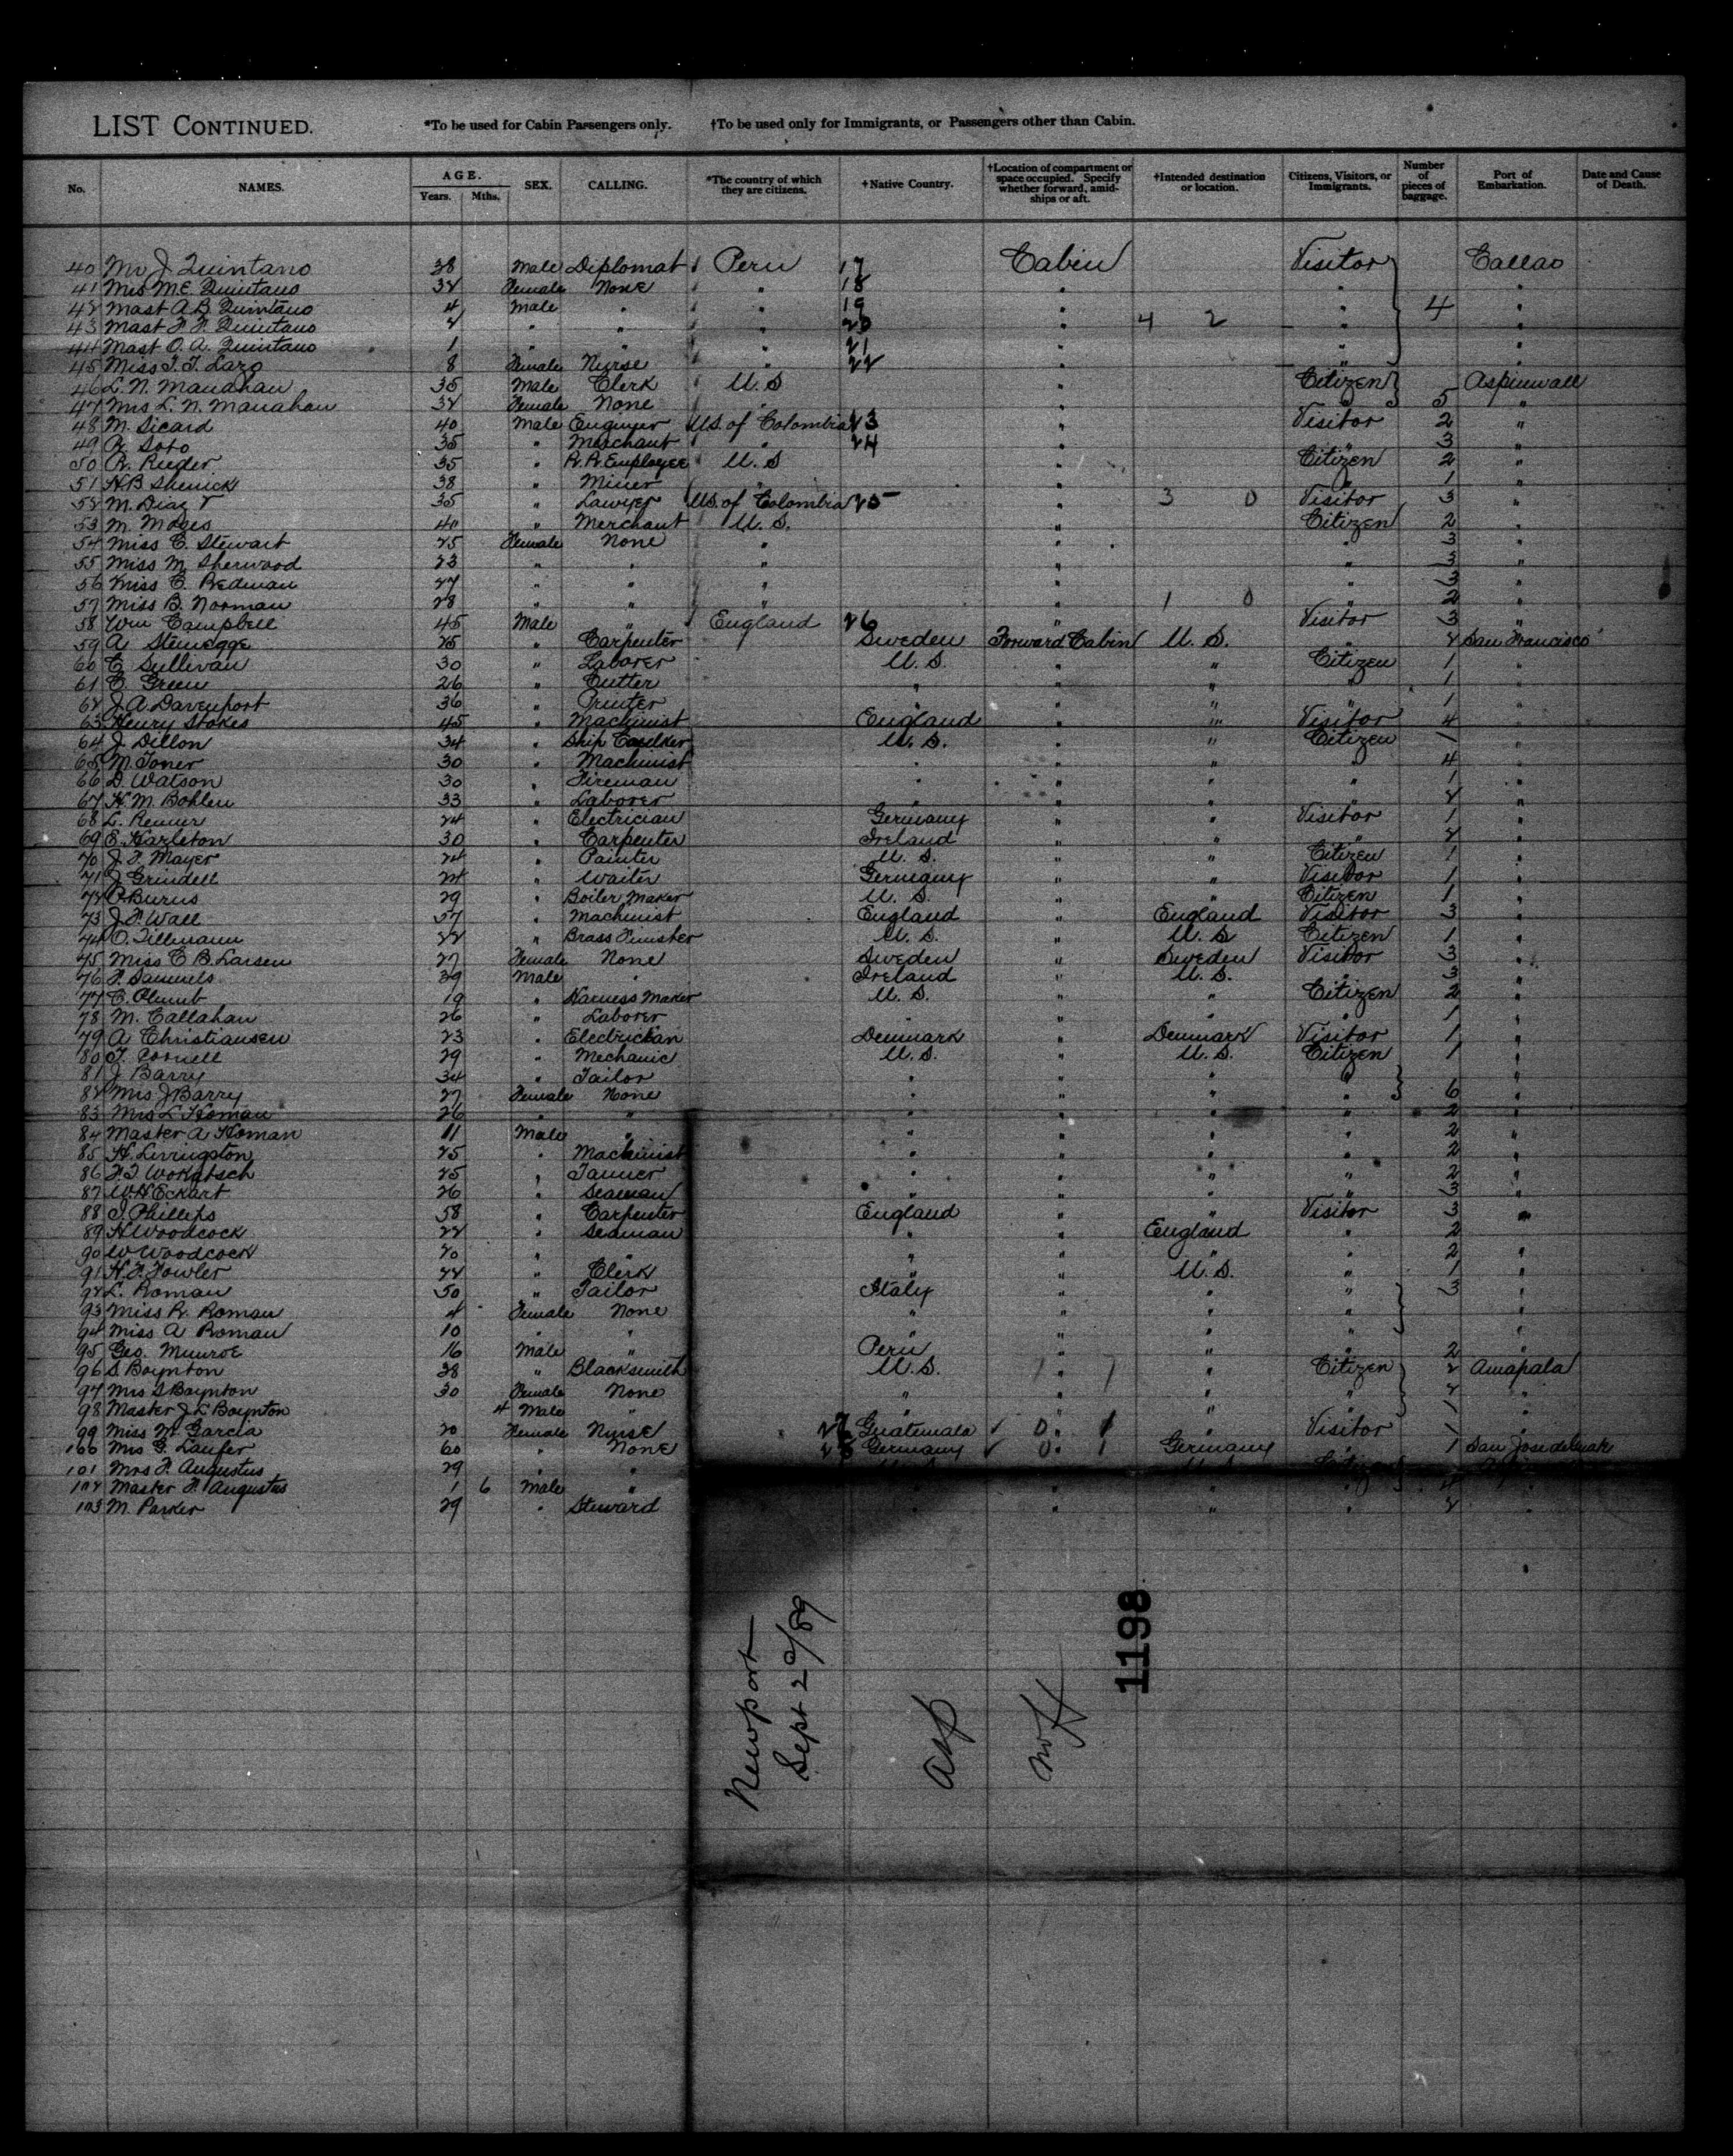 LIST CONTINUED. *To be used for Cabin Passengers only. †To be used only for Immigrants, or Passengers other than Cabin.
No. NAMES. AGE. Years. Mths. SEX. CALLING. *The country of which they are citizens. †Native Country. †Location of compartment or space occupied. Specify whether forward, amidships or aft. †Intended destination or location. Citizens, Visitors, or Immigrants. Number of pieces of baggage. Port of Embarkation. Date and Cause of Death.
40 Mr J. Quintano 38 Male Diplomat Peru 17 Cabin Visitor Callao
41 Mrs M.E. Quintano 32 Female None " 18 " " "
42 Mast A.B. Quintano 4 Male " " 19 " " 4 "
43 Mast F. F. Quintano 2 " " " 20 " 4 2 " "
44 Mast O. A. Quintano 1 " " " 21 " " "
45 Miss T. T. Lazo 8 Female Nurse " 22 " " "
46 L. N. Manahan 35 Male Clerk U.S " Citizen Aspinwall
47 Mrs L. N. Manahan 32 Female None " " " 5 "
48 M. Sicard 40 Male U.S. of Colombia 23 " Visitor 2 "
49 R. Soto 35 " Merchant " 24 " " 3 "
50 R. Rieder 35 " R.R. Employee U.S " Citizen 2 "
51 H.B. 38 " Miner " " " 1 "
52 M. Diaz 35 " Lawyer U.S. of Colombia 25 " 3 0 Visitor 3 "
53 M. 40 " Merchant U.S. " Citizen 2 "
54 Miss C. Stewart 25 Female None " " " 3 "
55 Miss M. Sherwood 23 " " " " " 3 "
56 Miss C. Redman 27 " " " " " 3 "
57 Miss B. Norman 28 " " " " 1 0 " 2 "
58 Wm Campbell 45 Male " England 26 " Visitor 3 "
59 A Steinegge 25 " Carpenter Sweden Forward Cabin U.S. " 2 San Francisco
60 C Sullivan 30 " Laborer U.S. " " Citizen 1 "
61 C. Green 26 " Cutter " " " " 1 "
62 J. A. Davenport 36 " Printer " " " " 1 "
63 Henry Stokes 45 " Machinist England " " Visitor 4 "
64 J. Dillon 34 " Ship U.S. " " Citizen 1 "
65 M. Toner 30 " Machinist " " " " 4 "
66 D. Watson 30 " Fireman " " " " 1 "
67 H. M. Bohlen 33 " Laborer " " " " 2 "
68 L. Renner 24 " Electrician Germany " " Visitor 1 "
69 E. Karleton 30 " Carpenter Ireland " " " 2 "
70 J. F. Mayer 24 " Painter U.S. " " Citizen 1 "
71 J. Grindell 24 " Waiter Germany " " Visitor 1 "
72 P. Burns 29 " Boiler Maker U.S. " " Citizen 1 "
73 J. F. Wall 57 " Machinist England " England Visitor 3 "
74 O. Tillmann 22 " Brass Finisher U.S. " U.S Citizen 1 "
75 Miss C B. Larsen 27 Female None Sweden " Sweden Visitor 3 "
76 F. Samuels 39 Male " Ireland " U.S. " 3 "
77 C. Plumb 19 " Harness Maker U.S. " " Citizen 2 "
78 M. Callahan 26 " Laborer " " " " 1 "
79 A Christiansen 23 " Electrician Denmark " Denmark Visitor 1 "
80 T. Cornell 29 " Mechanic U.S. " U.S. Citizen 1 "
81 J. Barry 34 " Tailor " " " " "
82 Mrs J Barry 27 Female None " " " " 6 "
83 Mrs L Homan 26 " " " " " " 2 "
84 Master A Homan 11 Male " " " " " 2 "
85 H. Livingston 25 " Machinist " " " " 2 "
86 F. J Wokatsch 25 " Tanner " " " " 2 "
87 W.H Eckart 26 " Seaman " " " " 3 "
88 J. Phillips 58 " Carpenter England " " Visitor 3 "
89 H Woodcock 22 " Seaman " " England " 2
90 W Woodcock 20 " " " " " " 2 "
91 H. F. Fowler 22 " Clerk " " U.S. " 1 "
92 L. Roman 50 " Tailor Italy " " " 3 "
93 Miss R. Roman 4 Female None " " " " "
94 Miss A Roman 10 " " " " " " "
95 Geo. Munroe 16 Male " Peru " " " 2 "
96 S Boynton 38 " Blacksmith U.S. " " Citizen 2 Amapala
97 Mrs S Boynton 30 Female None " " " " 2 "
98 Master J L Boynton 4 Male " " " " " 1 "
99 Miss M. Garcia 20 Female Nurse 27 Guatemala 0 1 " Visitor 1 "
100 Mrs G. Laufer 60 " None 28 Germany 0 1 Germany " 1 San Jose de Guate
101 Mrs F. Augustus 29 " "
102 Master F. Augustus 1 6 Male " " " " " 4 "
103 M. Parker 29 " Steward " " " " 2 "
Newport
Sept 2/89
Asp
1198